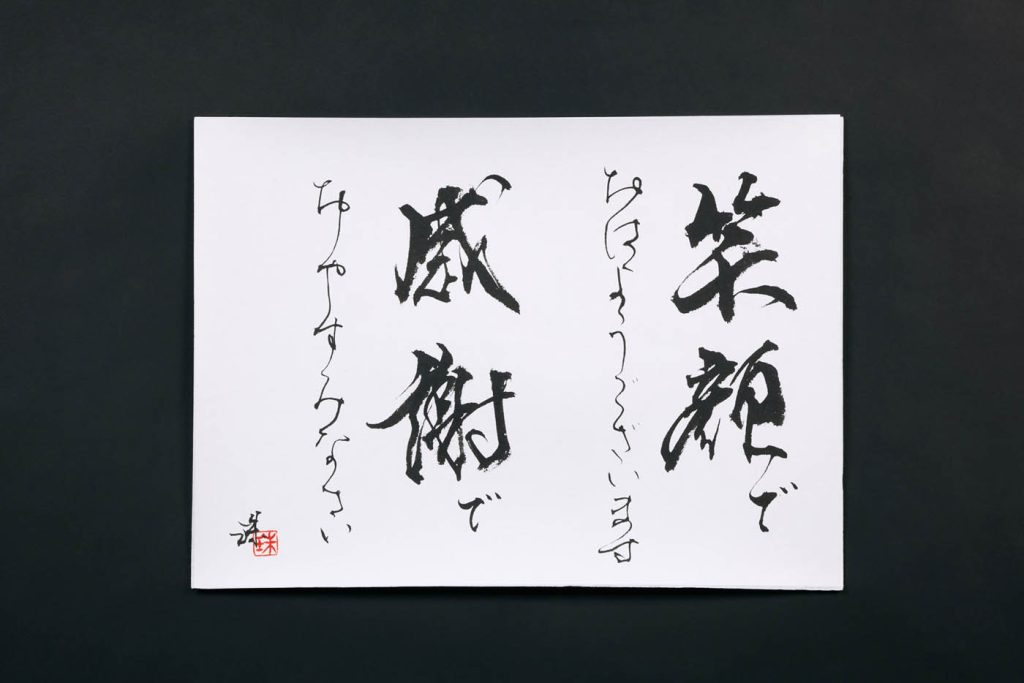 笑顔で
おはようございます
感謝で
おやすみなさい
珠
珠